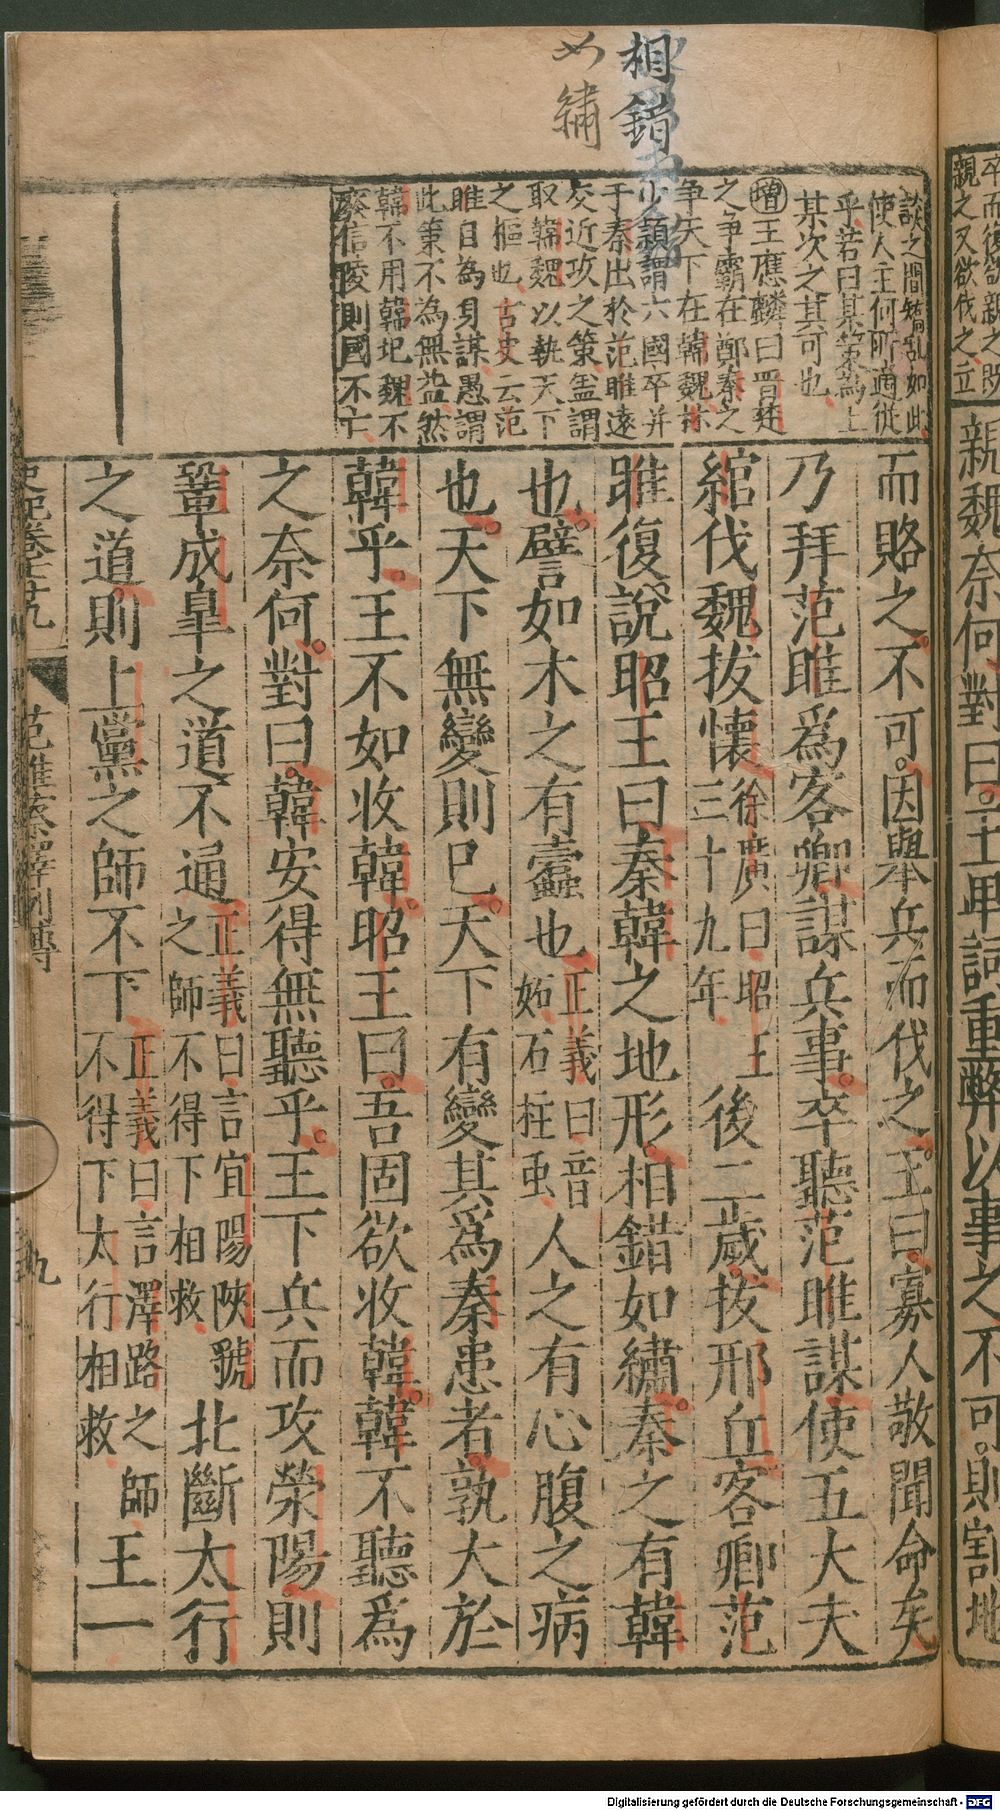 卒而復欲親之既
親之又欲伐之立
親魏奈何對曰王卑詞重弊以事之不可則割地
相錯
如繡
談之間矯亂如此
使人主何所適從
乎若曰某策為上
某次之其可也
增王應麟曰晋楚
之爭霸在鄭秦之
爭天下在韓魏林
少頴謂六國卒并
于秦出於范睢遠
交近攻之策盖謂
取韓魏以執天下
之樞也古史云范
睢自為身謀愚謂
此策不為無益然
韓不用韓玘魏不
廢信陵則國不亡
而賂之不可因舉兵而伐之王曰寡人敬聞命矣
乃拜范睢爲客卿謀兵事卒聽范睢謀使五大夫
綰伐魏拔懷徐廣曰昭王三十九年後二歲拔邢丘客卿范
睢復說昭王曰秦韓之地形相錯如繡秦之有韓
也譬如木之有蠹也正義曰音妬石柱虫人之有心腹之病
也天下無變則已天下有變其爲秦患者孰大於
韓乎王不如收韓昭王曰吾固欲收韓韓不聽爲
之奈何對曰韓安得無聽乎王下兵而攻滎陽則
鞏成臯之道不通正義曰言宜陽陝虢之師不得下相救北斷太行
之道則上黨之師不下正義曰言澤路之師不得下太行相救王一
史記卷七十九
范睢蔡澤列傳
九
Digitalisierung gefördert durch die Deutsche Forschungsgemeinschaft - DFG